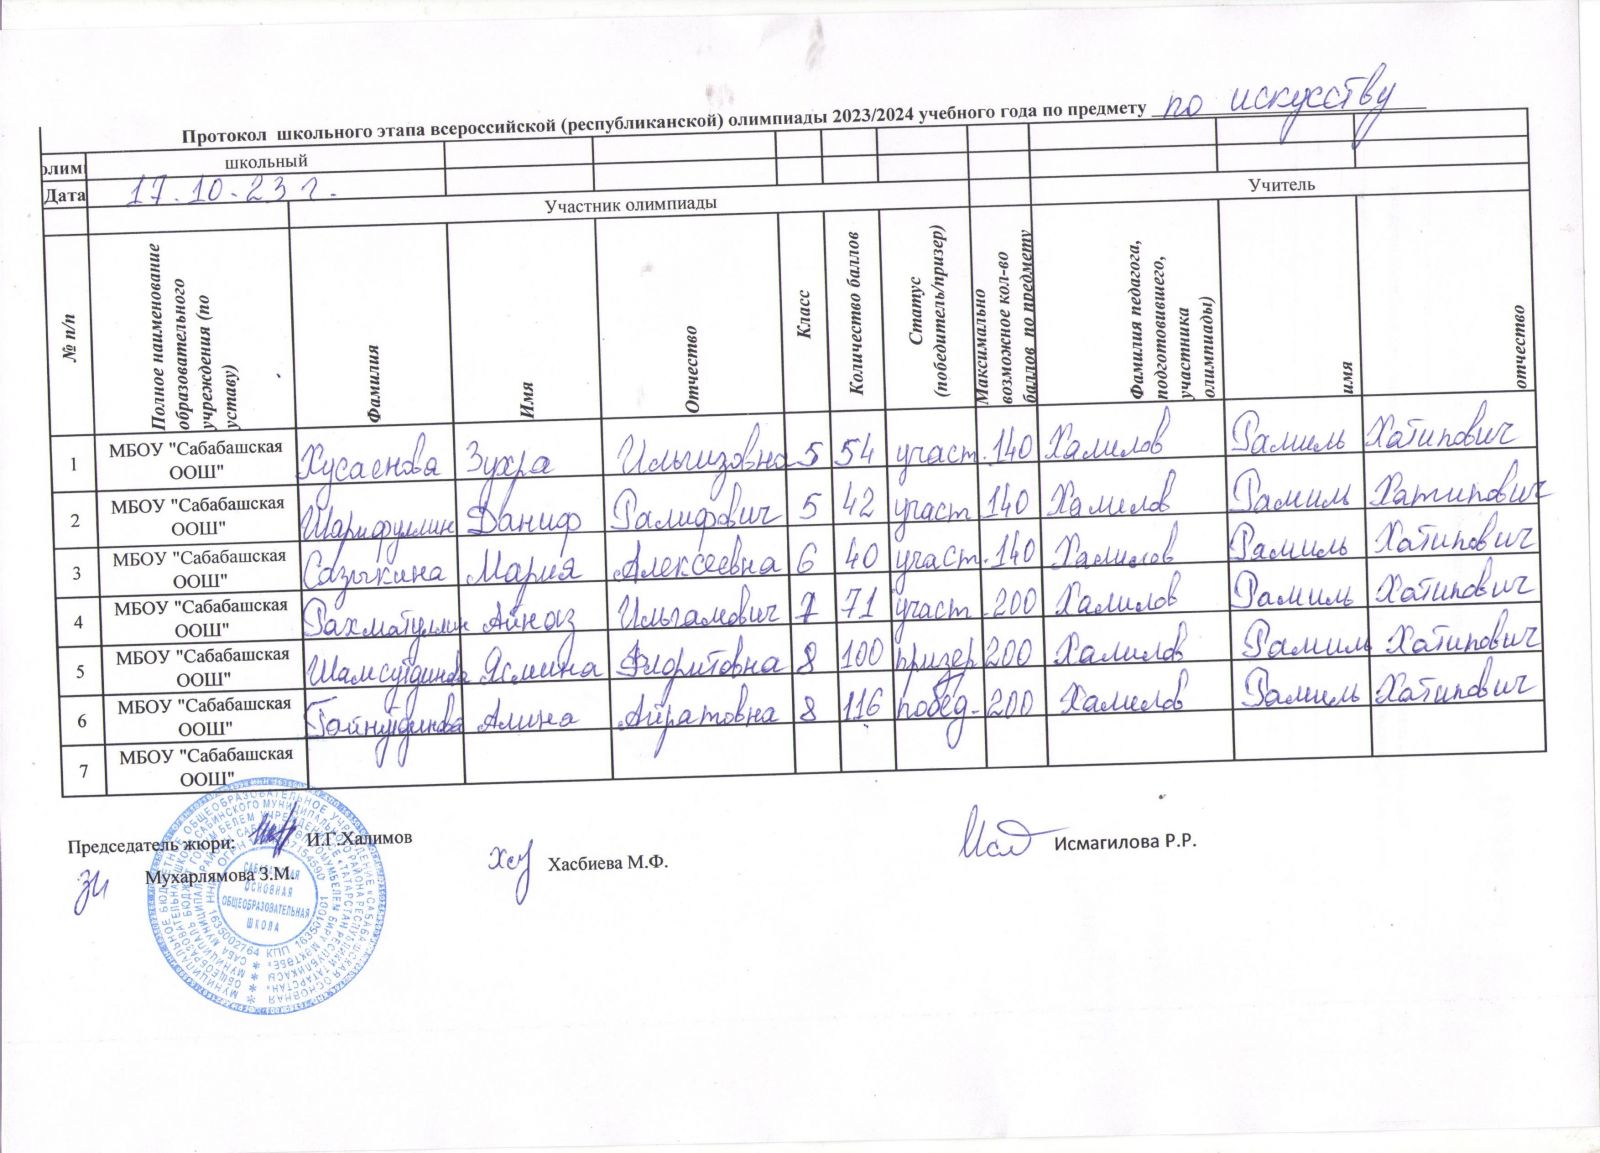 Протокол школьного этапа всероссийской (республиканской) олимпиады 2023/2024 учебного года по предмету по искусству
олимп школьный
Дата 17.10.23 г.
Участник олимпиады Учитель
№ п/п Полное наименование образовательного учреждения (по уставу) Фамилия Имя Отчество Класс Количество баллов Статус (победитель/призер) Максимально возможное кол-во баллов по предмету Фамилия педагога, подготовившего, участника олимпиады) имя отчество
1 МБОУ "Сабабашская ООШ" Хусаенова Зухра Ильгизовна 5 54 участ. 140 Халилов Рамиль Хатипович
2 МБОУ "Сабабашская ООШ" Шарифуллин Даниф Ралифович 5 42 участ 140 Халилов Рамиль Хатипович
3 МБОУ "Сабабашская ООШ" Сазыкина Мария Алексеевна 6 40 участ. 140 Халилов Рамиль Хатипович
4 МБОУ "Сабабашская ООШ" Рахматуллин Айназ Ильгамович 7 71 участ. 200 Халилов Рамиль Хатипович
5 МБОУ "Сабабашская ООШ" Шамсутдинова Ясмина Флоритовна 8 100 призер 200 Халилов Рамиль Хатипович
6 МБОУ "Сабабашская ООШ" Гайнутдинова Алина Айратовна 8 116 побед. 200 Халилов Рамиль Хатипович
7 МБОУ "Сабабашская ООШ"
Председатель жюри: И.Г.Халимов
Мухарлямова З.М.
Хасбиева М.Ф.
Исмагилова Р.Р.
САБАБАШСКАЯ
ОСНОВНАЯ
ОБЩЕОБРАЗОВАТЕЛЬНАЯ
ШКОЛА